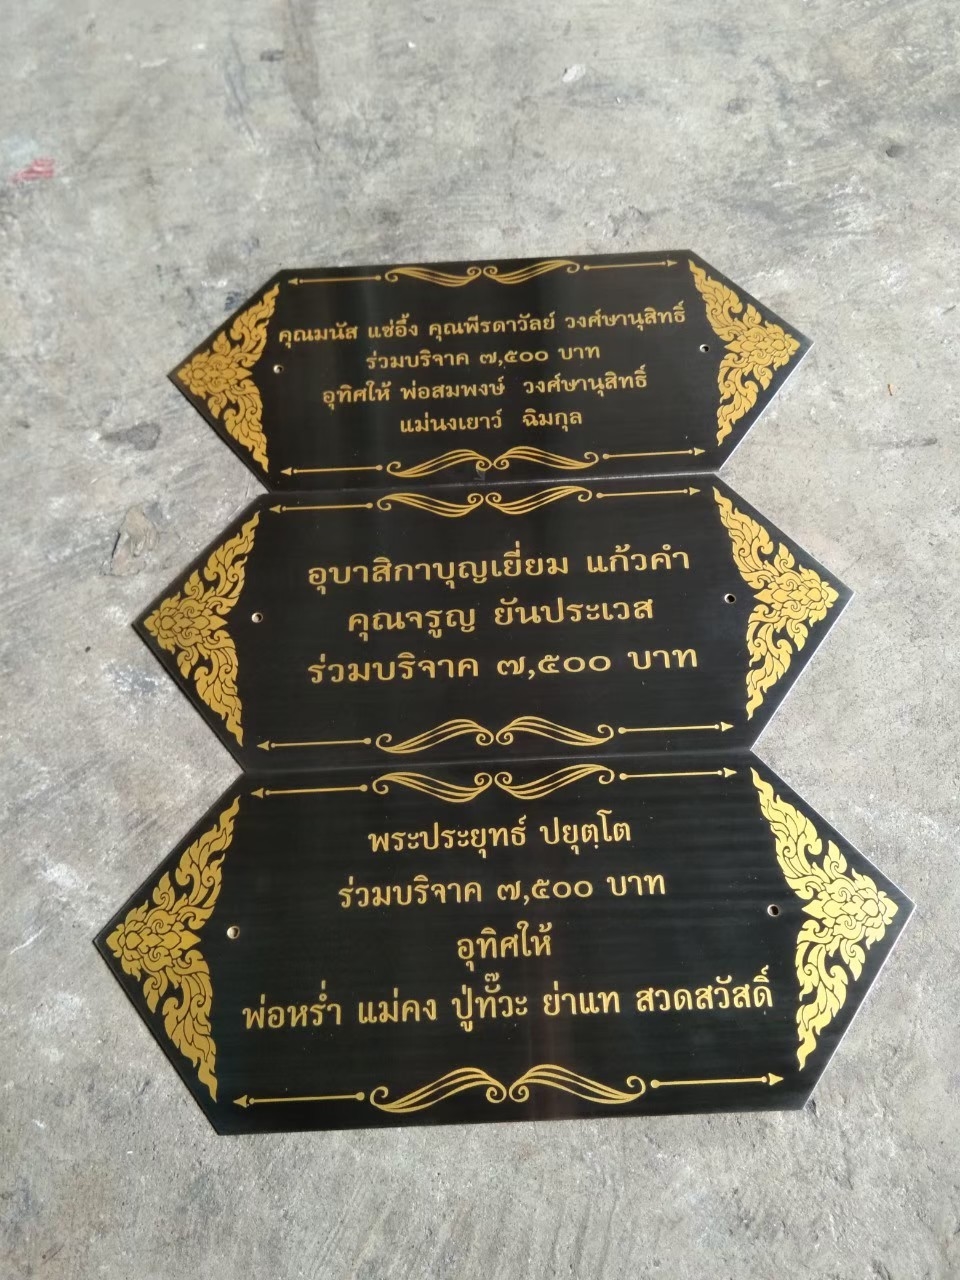 คุณมนัส แซ่อึ้ง คุณพีรดาวัลย์ วงศ์ษานุสิทธิ์
ร่วมบริจาค ๗,๕๐๐ บาท
อุทิศให้ พ่อสมพงษ์ วงศ์ษานุสิทธิ์
แม่นงเยาว์ ฉิมกุล
อุบาสิกาบุญเยี่ยม แก้วคำ
คุณจรูญ ยันประเวส
ร่วมบริจาค ๗,๕๐๐ บาท
พระประยุทธ์ ปยุตฺโต
ร่วมบริจาค ๗,๕๐๐ บาท
อุทิศให้
พ่อหร่ำ แม่คง ปู่ทั๊วะ ย่าแท สวดสวัสดิ์